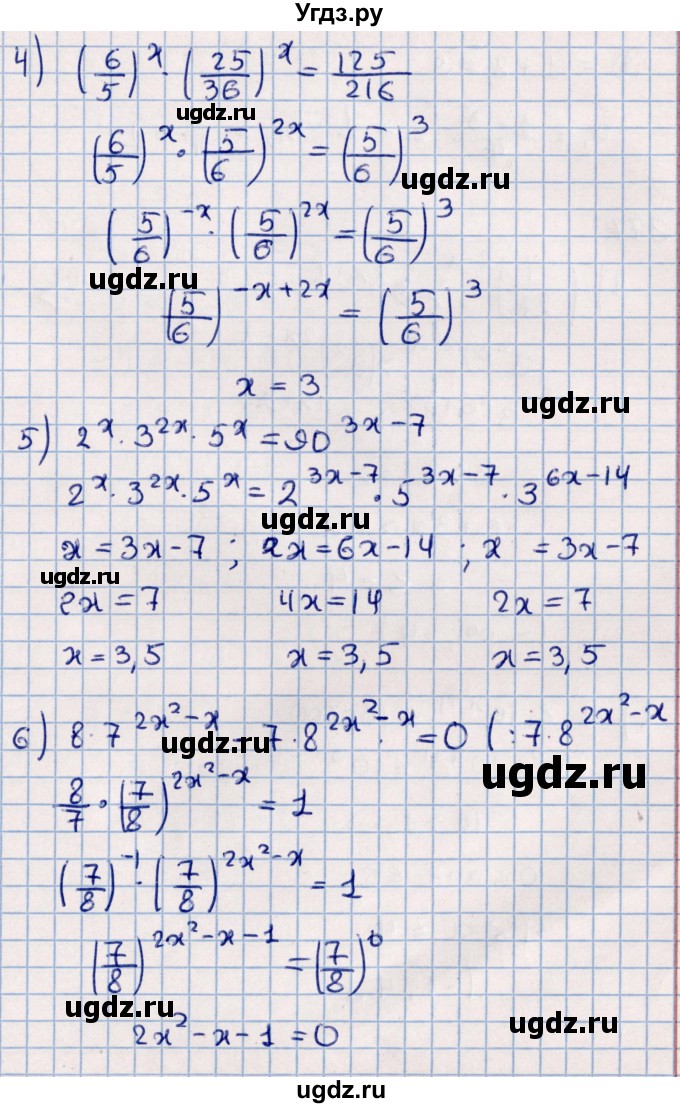 Угдз.ру
4) (6/5)^x · (25/36)^x = 125/216
ugdz.ru
(6/5)^x · (5/6)^2x = (5/6)^3
ugdz.ru
(5/6)^-x · (5/6)^2x = (5/6)^3
ugdz.ru
(5/6)^-x+2x = (5/6)^3
x = 3
ugdz.ru
5) 2^x · 3^2x · 5^x = 90^3x-7
2^x · 3^2x · 5^x = 2^3x-7 · 5^3x-7 · 3^6x-14
ugdz.ru
x = 3x-7 ; 2x = 6x-14 ; x = 3x-7
ugdz.ru
2x = 7 4x = 14 2x = 7
x = 3,5 x = 3,5 x = 3,5
6) 8 · 7^2x²-x - 7 · 8^2x²-x = 0 (: 7 · 8^2x²-x
ugdz.ru
ugdz.ru
8/7 · (7/8)^2x²-x = 1
(7/8)^-1 · (7/8)^2x²-x = 1
ugdz.ru
(7/8)^2x²-x-1 = (7/8)^0
ugdz.ru
2x²-x-1 = 0
ugdz.ru